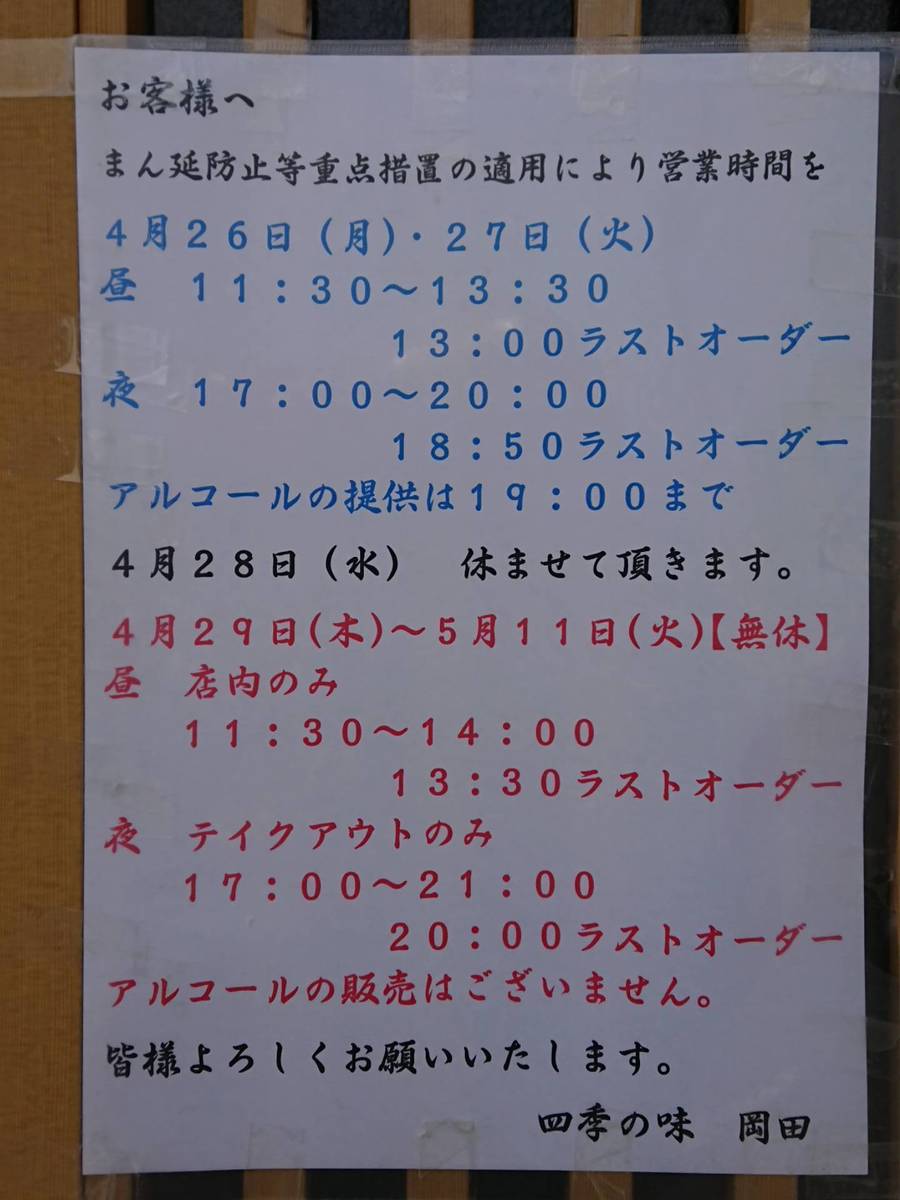 お客様へ
まん延防止等重点措置の適用により営業時間を
４月２６日（月）・２７日（火）
昼　１１：３０～１３：３０
１３：００ラストオーダー
夜　１７：００～２０：００
１８：５０ラストオーダー
アルコールの提供は１９：００まで
４月２８日（水）　休ませて頂きます。
４月２９日(木)～５月１１日(火)【無休】
昼　店内のみ
１１：３０～１４：００
１３：３０ラストオーダー
夜　テイクアウトのみ
１７：００～２１：００
２０：００ラストオーダー
アルコールの販売はございません。
皆様よろしくお願いいたします。
四季の味　岡田